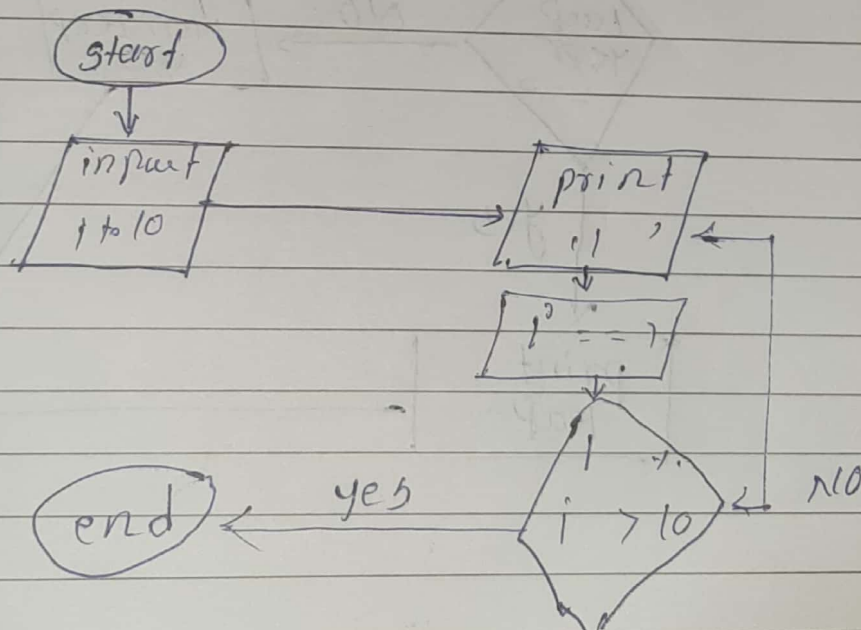 start
input
1 to 10
print
i
i = =
i > 10
yes
NO
end